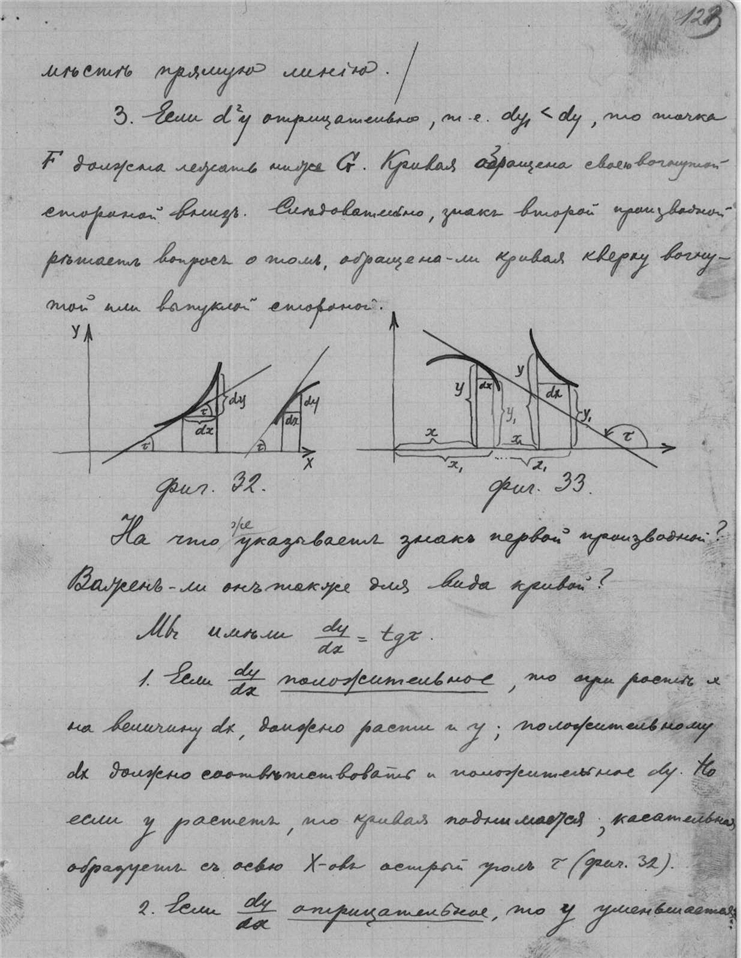 123
мѣстѣ прямую линію.
3. Если d²y отрицательно, т.е. dy₁ < dy, то точка
F должна лежать ниже G. Кривая обращена своею вогнутой
стороной внизъ. Слѣдовательно, знакъ второй производной
рѣшаетъ вопросъ о томъ, обращена-ли кривая кверху вогну-
той или выпуклой стороной.
y dy τ dx τ dy dx τ x
y dx y₁ y dx y₁ τ
x x₁ x₁ x₁
фиг. 32. фиг. 33.
На что же указываетъ знакъ первой производной?
Важенъ-ли онъ также для вида кривой?
Мы имѣли dy/dx = tgτ.
1. Если dy/dx положительное, то при растѣ x
на величину dx, должно расти и y; положительному
dx должно соотвѣтствовать и положительное dy. Но
если y растетъ, то кривая поднимается; касательная
образуетъ съ осью X-овъ острый уголъ τ (фиг. 32).
2. Если dy/dx отрицательное, то y уменьшается